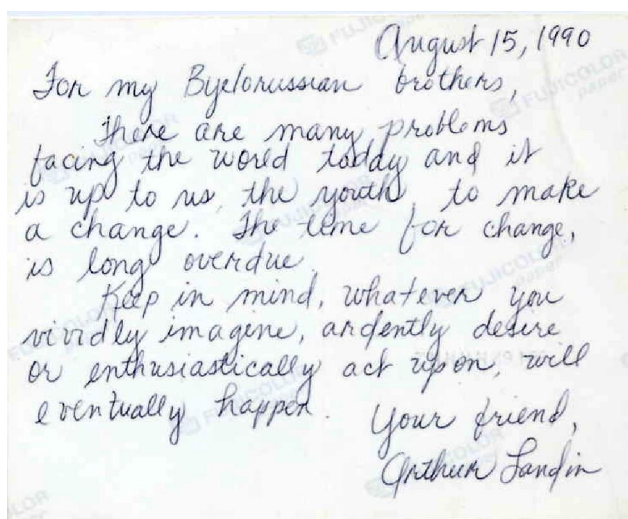 August 15, 1990
For my Byelorussian brothers,
There are many problems
facing the world today and it
is up to us, the youth, to make
a change. The time for change,
is long overdue.
Keep in mind, whatever you
vividly imagine, ardently desire
or enthusiastically act upon, will
eventually happen.
Your friend,
Arthur Landin
FUJICOLOR
paper